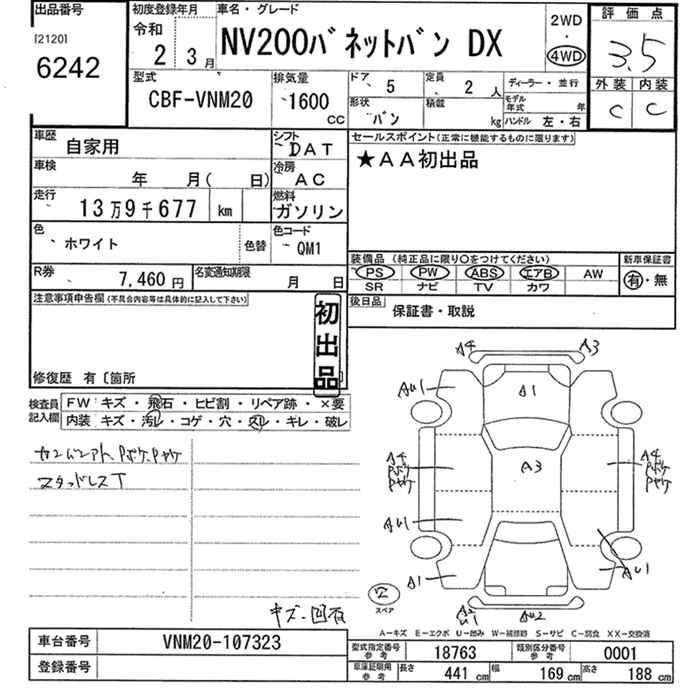 出品番号
[2120]
6242
初度登録年月
令和
2 3月
車名・グレード
NV200バネットバン DX
2WD
・
4WD
評価点
3.5
外装 内装
C C
型式
CBF-VNM20
排気量
1600
cc
ドア 5
形状 バン
定員 2 人
積載 kg
ディーラー・並行
モデル年式 年
ハンドル 左・右
車歴 自家用
シフト DAT
車検 年 月( 日)
冷房 AC
走行 13万9千677 km
燃料 ガソリン
色 ホワイト 色替
色コード QM1
R券 7,460円
名変通知期限 月 日
セールスポイント(正常に機能するものに限ります)
★AA初出品
装備品 (純正品に限り○をつけてください)
新車保証書
PS PW ABS エアB AW
SR ナビ TV カワ
有・無
後日品 保証書・取説
注意事項申告欄(不具合内容等は具体的に記入して下さい)
初出品
修復歴 有〔箇所
検査員記入欄
FW キズ・飛石・ヒビ割・リペア跡・×要
内装 キズ・汚レ・コゲ・穴・スレ・キレ・破レ
スタッドレスT
キズ・凹有
A4 A3
AU1 A1
A4 A3 A4
Pボケ Pボケ
Pヤケ Pヤケ
AU1 AU1
A1
スペア
AU2
A-キズ E-エクボ U-凹み W-補修跡 S-サビ C-腐食 XX-交換済
車台番号 VNM20-107323
登録番号
型式指定番号 参考 18763
類別区分番号 参考 0001
車庫証明用 参考
長さ 441 cm
幅 169 cm
高さ 188 cm